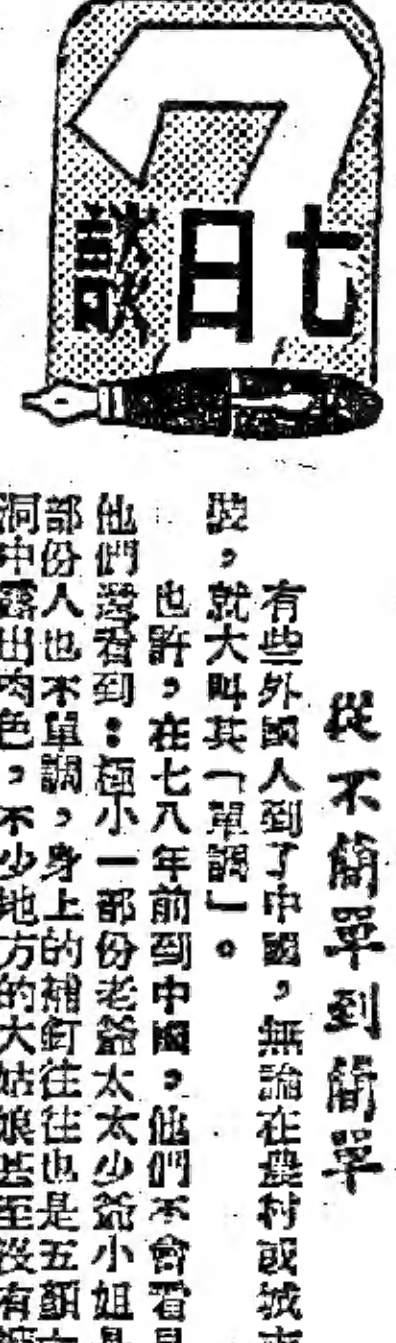 七日談
從不簡單到簡單
有些外國人到了中國,無論在農村或城市
裝,就大叫其「單調」。
也許,在七八年前到中國,他們不會看見
他們還看到:極小一部份老爺太太少爺小姐
部份人也不單調,身上的補釘往往也是五顏六
洞中露出肉色,不少地方的大姑娘甚至沒有